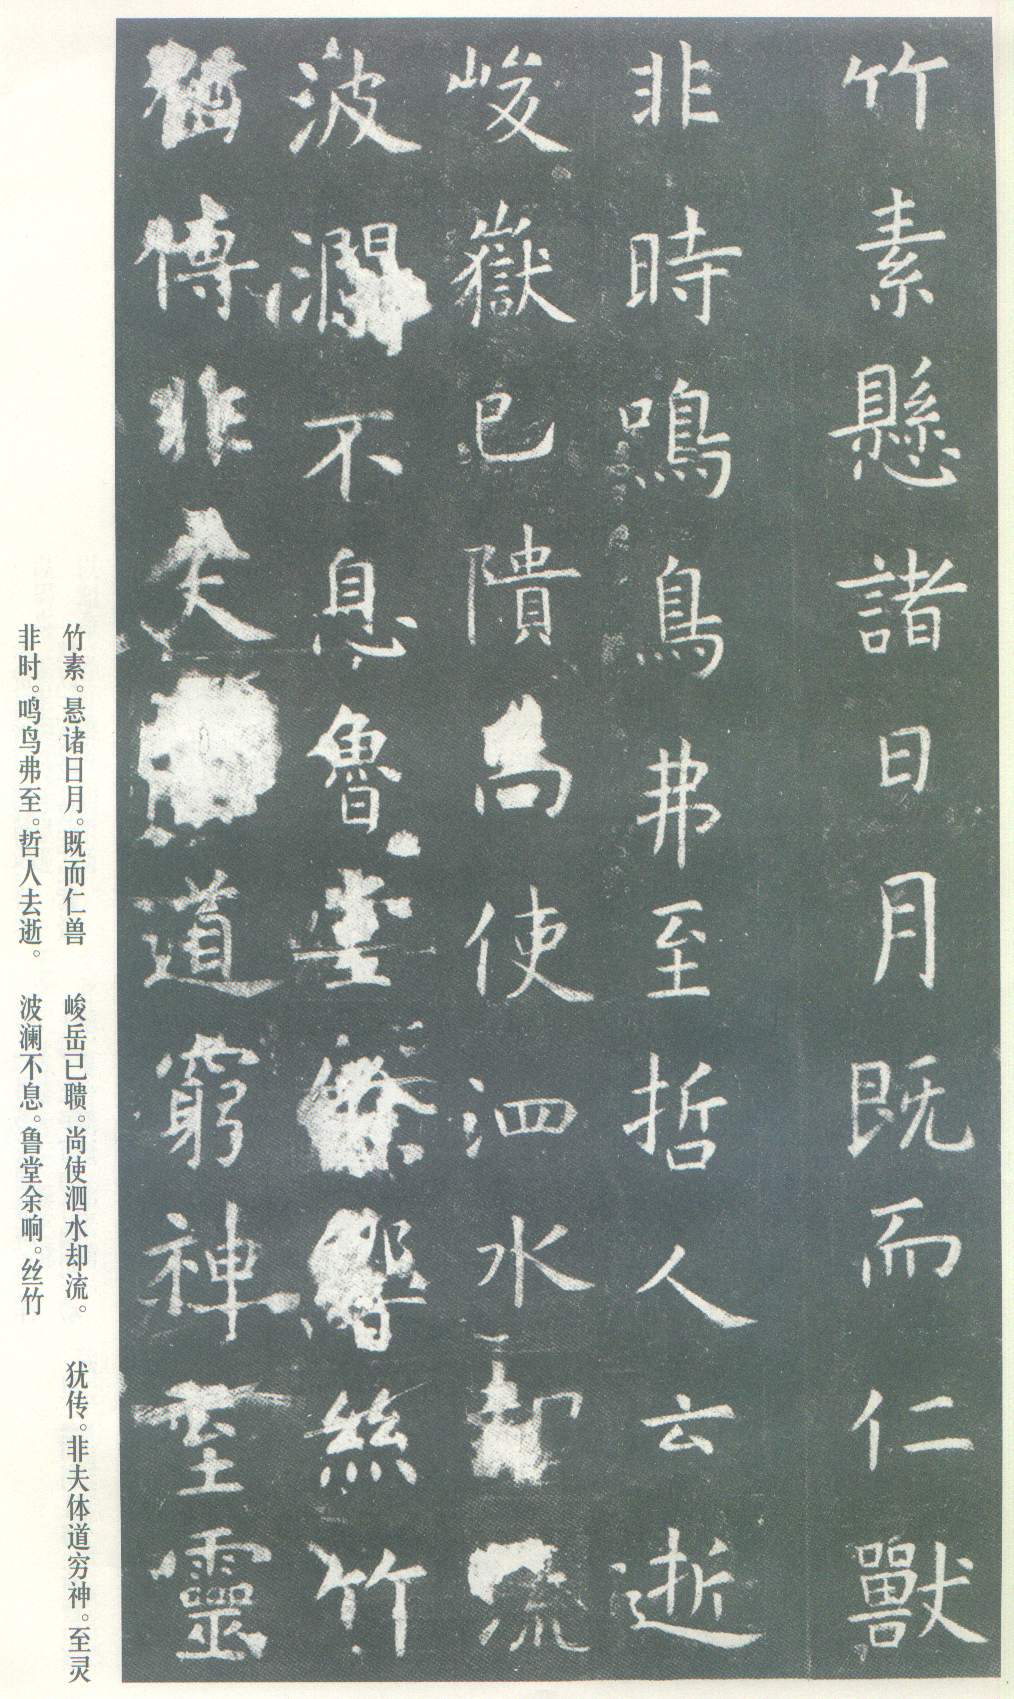 竹素懸諸日月既而仁獸
非時鳴鳥弗至哲人云逝
峻嶽已隤尚使泗水却流
波瀾不息魯堂餘響絲竹
猶傳非夫道窮神至靈
竹素。悬诸日月。既而仁兽
非时。鸣鸟弗至。哲人去逝。
峻岳已聩。尚使泗水却流。
波澜不息。鲁堂余响。丝竹
犹传。非夫体道穷神。至灵